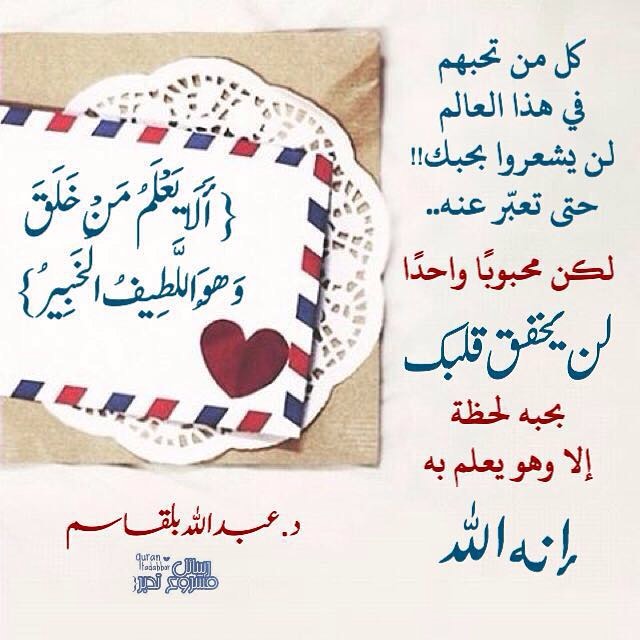 كل من تحبهم
في هذا العالم
لن يشعروا بحبك!!
حتى تعبّر عنه..
لكن محبوبًا واحدًا
لن يخفق قلبك
بحبه لحظة
إلا وهو يعلم به
إنه الله
{أَلَا يَعْلَمُ مَنْ خَلَقَ
وَهُوَ اللَّطِيفُ الْخَبِيرُ}
د. عبد الله بلقاسم
quran
tadabbor
رسائل
مشروع تدبر